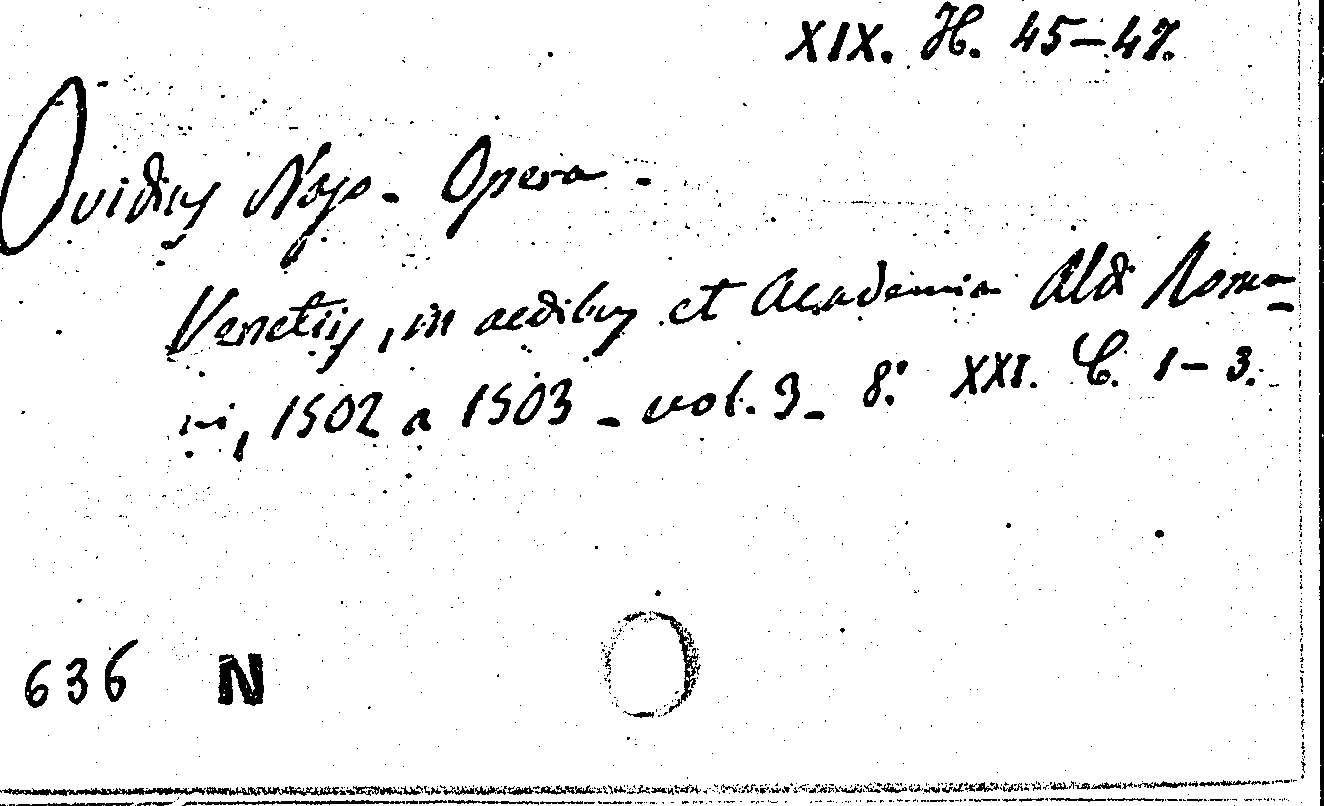 XIX. H. 45-47.
Ovidius Naso - Opera -
Venetiis, in aedibus et Academia Aldi Roma-
ni, 1502 a 1503 - vol. 3 - 8.º XXI. C. 1-3.
636 N